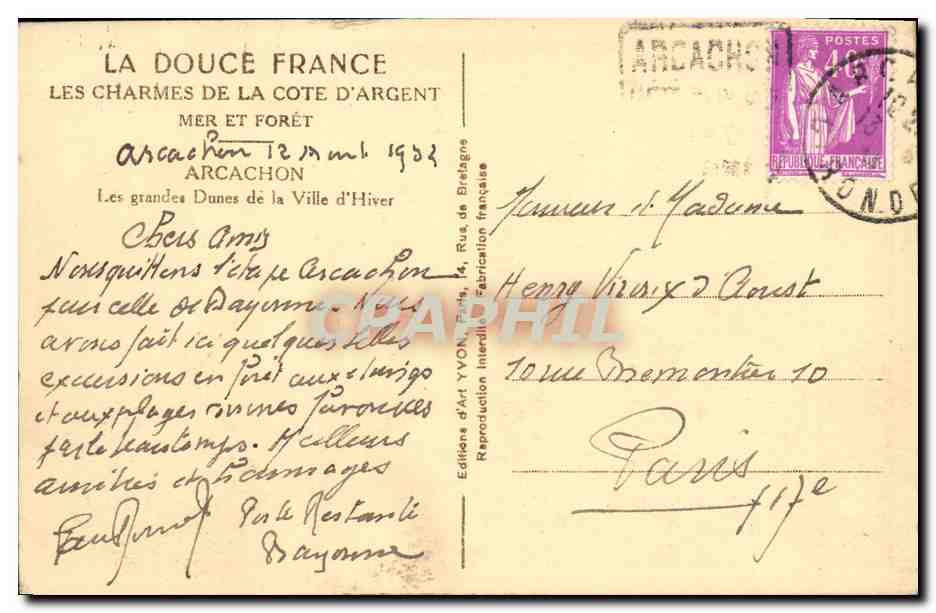 LA DOUCE FRANCE
LES CHARMES DE LA COTE D'ARGENT
MER ET FORÊT
Arcachon 12 1932
ARCACHON
Les grandes Dunes de la Ville d'Hiver
Chers Amis
Nous quittons l'étape Arcachon
pour celle de Bayonne. Nous
avons fait ici quelques belles
excursions en forêt aux étangs
et aux plages voisines favorisées
par le beau temps. Meilleurs
amitiés et hommages
Poste Restante
Bayonne
Editions d'Art YVON, Paris, 14, Rus, de Bretagne
Reproduction Interdite Fabrication française
CPAPHIL
ARCACHON
POSTES
REPUBLIQUE FRANCAISE
Monsieur et Madame
Henry d'Aoust
10 rue Bremontier 10
Paris
17e